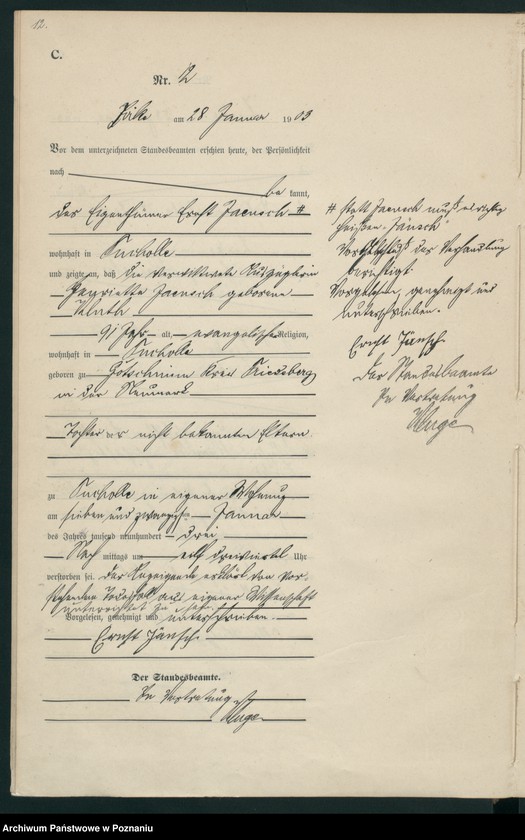 12.
C.
Nr. 12
Zirke am 28 Januar 1903
Vor dem unterzeichneten Standesbeamten erschien heute, der Persönlichkeit
nach
be kannt,
der Eigenthümer Ernst Jaensch #
wohnhaft in Kucholle
und zeigte an, daß die verwittwete Auszüglerin
Henriette Jaensch geborene
91 Jahr alt, evangelischer Religion,
wohnhaft in Kucholle
geboren zu Kreis Friedeberg
in der Neumark
Tochter der nicht bekannten Eltern.
zu Kucholle in eigener Wohnung
am sieben und zwanzigsten Januar
des Jahres tausend neunhundert drei
Nach mittags um elf dreiviertel Uhr
verstorben sei. Der Anzeigende erklärt von vor-
stehendem Todesfall aus eigener Wissenschaft
unterrichtet zu sein.
Vorgelesen, genehmigt und unterschrieben.
Ernst Jänsch
Der Standesbeamte.
In Vertretung
# statt Jaensch muß es richtig
heißen: Jänsch
der Verhandlung
berichtigt
Vorgelesen, genehmigt und
unterschrieben.
Ernst Jänsch
Der Standesbeamte
In Vertretung
Archiwum Państwowe w Poznaniu